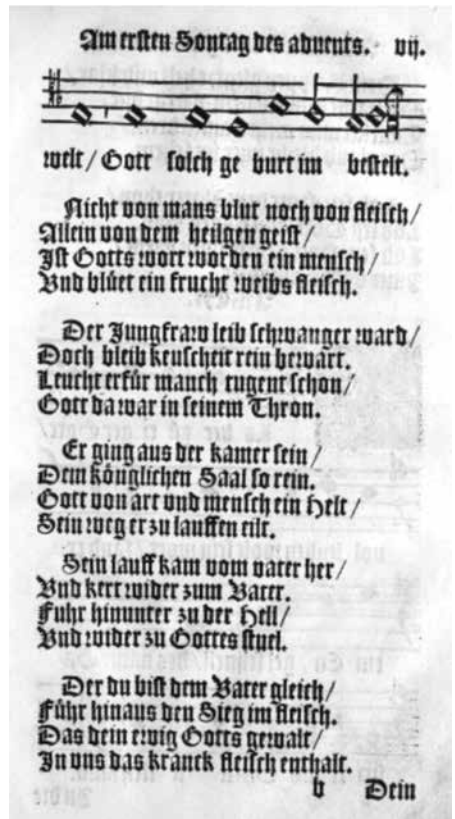 Am ersten Sontag des advents. vij.
welt / Gott solch ge burt im bestelt.
Nicht von mans blut noch von fleisch /
Allein von dem heilgen geist /
Ist Gotts wort worden ein mensch /
Vnd blüet ein frucht weibs fleisch.
Der Jungfraw leib schwanger ward /
Doch bleib keuscheit rein bewart.
Leucht erfür manch tugent schon /
Gott da war in seinem Thron.
Er ging aus der kamer sein /
Dem königlichen Saal so rein.
Gott von art vnd mensch ein Helt /
Sein weg er zu lauffen eilt.
Sein lauff kam vom vater her /
Vnd kert wider zum Vater.
Fuhr hinunter zu der Hell /
Vnd wider zu Gottes stuel.
Der du bist dem Vater gleich /
Führ hinaus den Sieg im fleisch.
Das dein ewig Gotts gewalt /
In vns das kranck fleisch enthalt.
b Dein